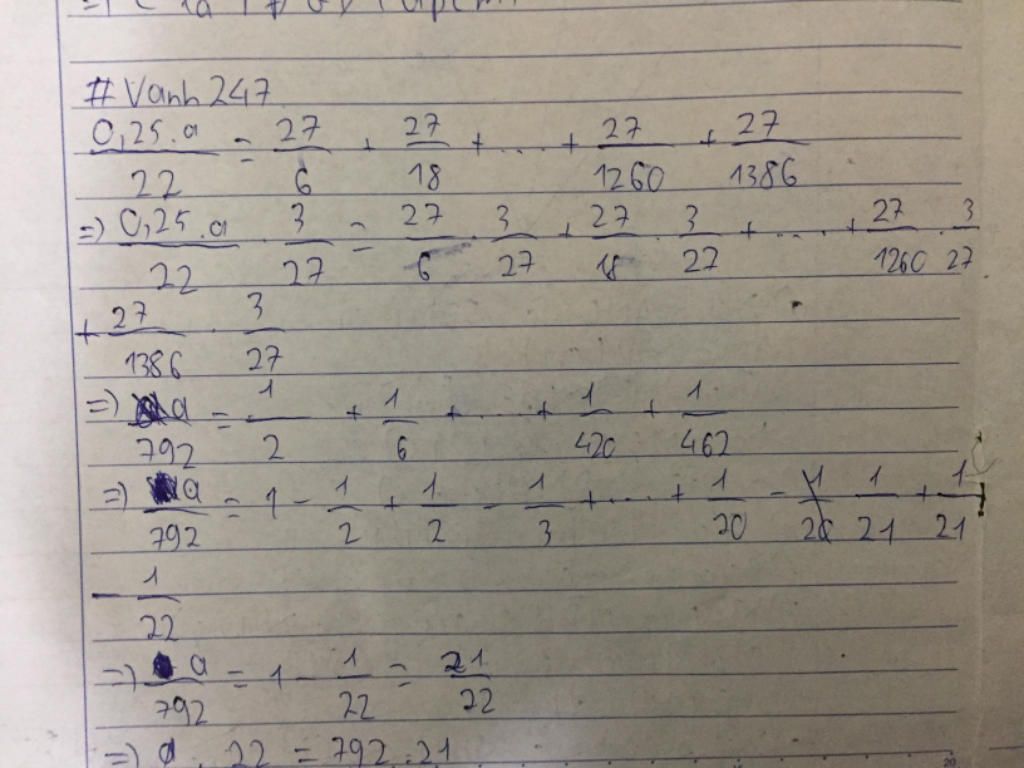 # Vanh 247
0,25.a / 22 = 27/6 + 27/18 + .... + 27/1260 + 27/1386
=) 0,25.a / 22 . 3/27 = 27/6 . 3/27 + 27/18 . 3/27 + .... + 27/1260 . 3/27
+ 27/1386 . 3/27
=) a/792 = 1/2 + 1/6 + .... + 1/420 + 1/462
=) a/792 = 1 - 1/2 + 1/2 - 1/3 + .... + 1/20 - 1/21 + 1/21
- 1/22
=) a/792 = 1 - 1/22 = 21/22
=) a . 22 = 792 . 21
20